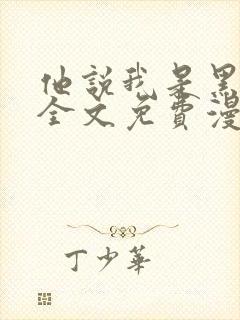 他說我是黑
全文免費漫
丁少華